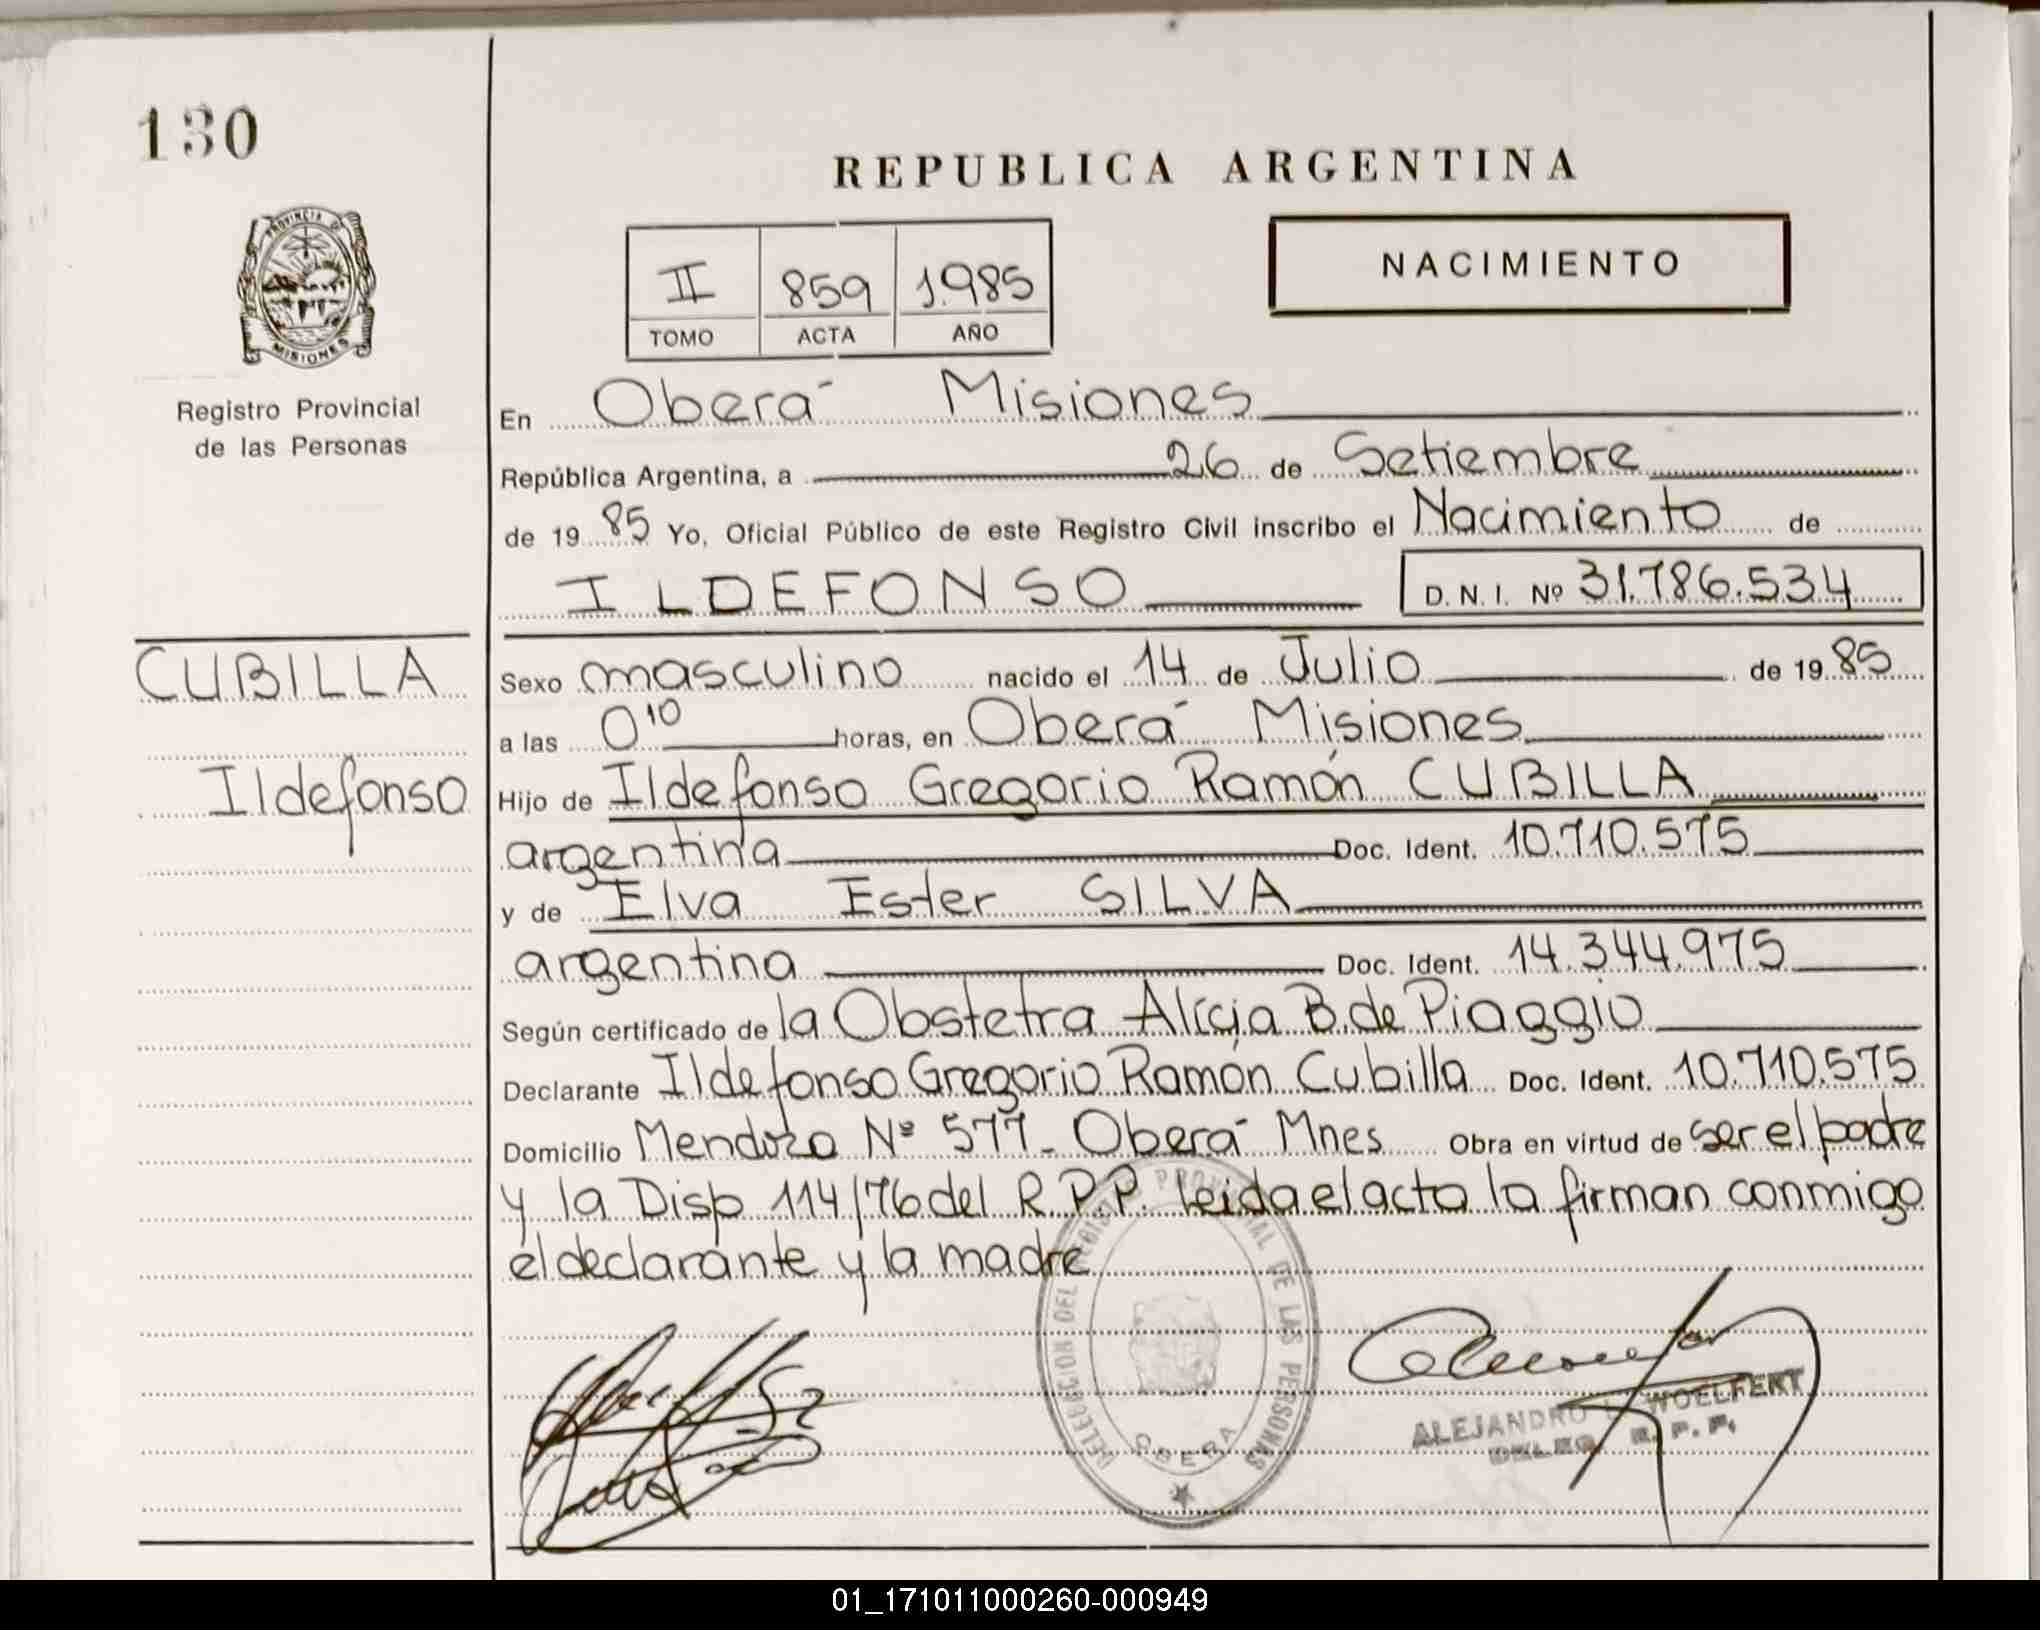 130
REPUBLICA ARGENTINA
PROVINCIA DE
MISIONES
Registro Provincial
de las Personas
II 859 1.985
TOMO ACTA AÑO
NACIMIENTO
En Oberá Misiones
República Argentina, a 26 de Setiembre
de 19 85 Yo, Oficial Público de este Registro Civil inscribo el Nacimiento de
ILDEFONSO D.N.I. Nº 31.786.534
CUBILLA
Ildefonso
Sexo masculino nacido el 14 de Julio de 19 85
a las 0¹⁰ horas, en Oberá Misiones
Hijo de Ildefonso Gregorio Ramón CUBILLA
argentina Doc. Ident. 10.710.575
y de Elva Ester SILVA
argentina Doc. Ident. 14.344.975
Según certificado de la Obstetra Alicia B. de Piaggio
Declarante Ildefonso Gregorio Ramón Cubilla Doc. Ident. 10.710.575
Domicilio Mendoza Nº 577 - Oberá Mnes Obra en virtud de ser el padre
y la Disp 114/76 del R.P.P. leida el acta la firman conmigo
el declarante y la madre
DELEGACION DEL REGISTRO PROVINCIAL DE LAS PERSONAS
OBERA
ALEJANDRO WOELFERT
DELEG. R. P. P.
01_171011000260-000949